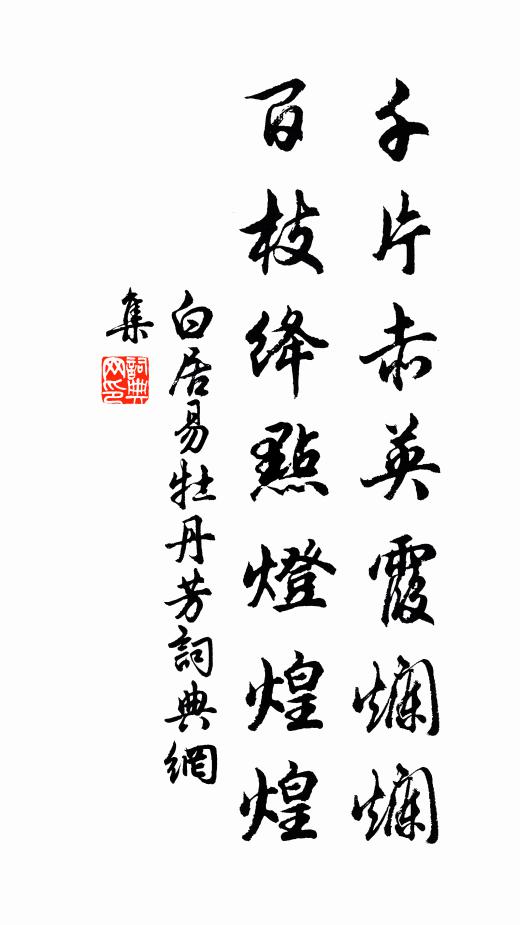 千片赤英霞爛爛
百枝絳點燈煌煌
白居易牡丹芳詞典網
集
詞典
网印